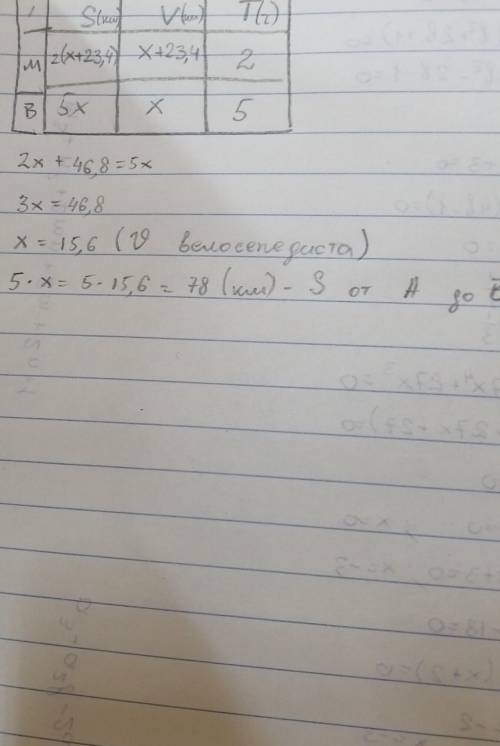 S(км) V(км) T(ч)
м 2(x+23,4) x+23,4 2
в 5x x 5
2x + 46,8 = 5x
3x = 46,8
x = 15,6 (V велосепедиста)
5·x = 5·15,6 = 78 (км) - S от A до